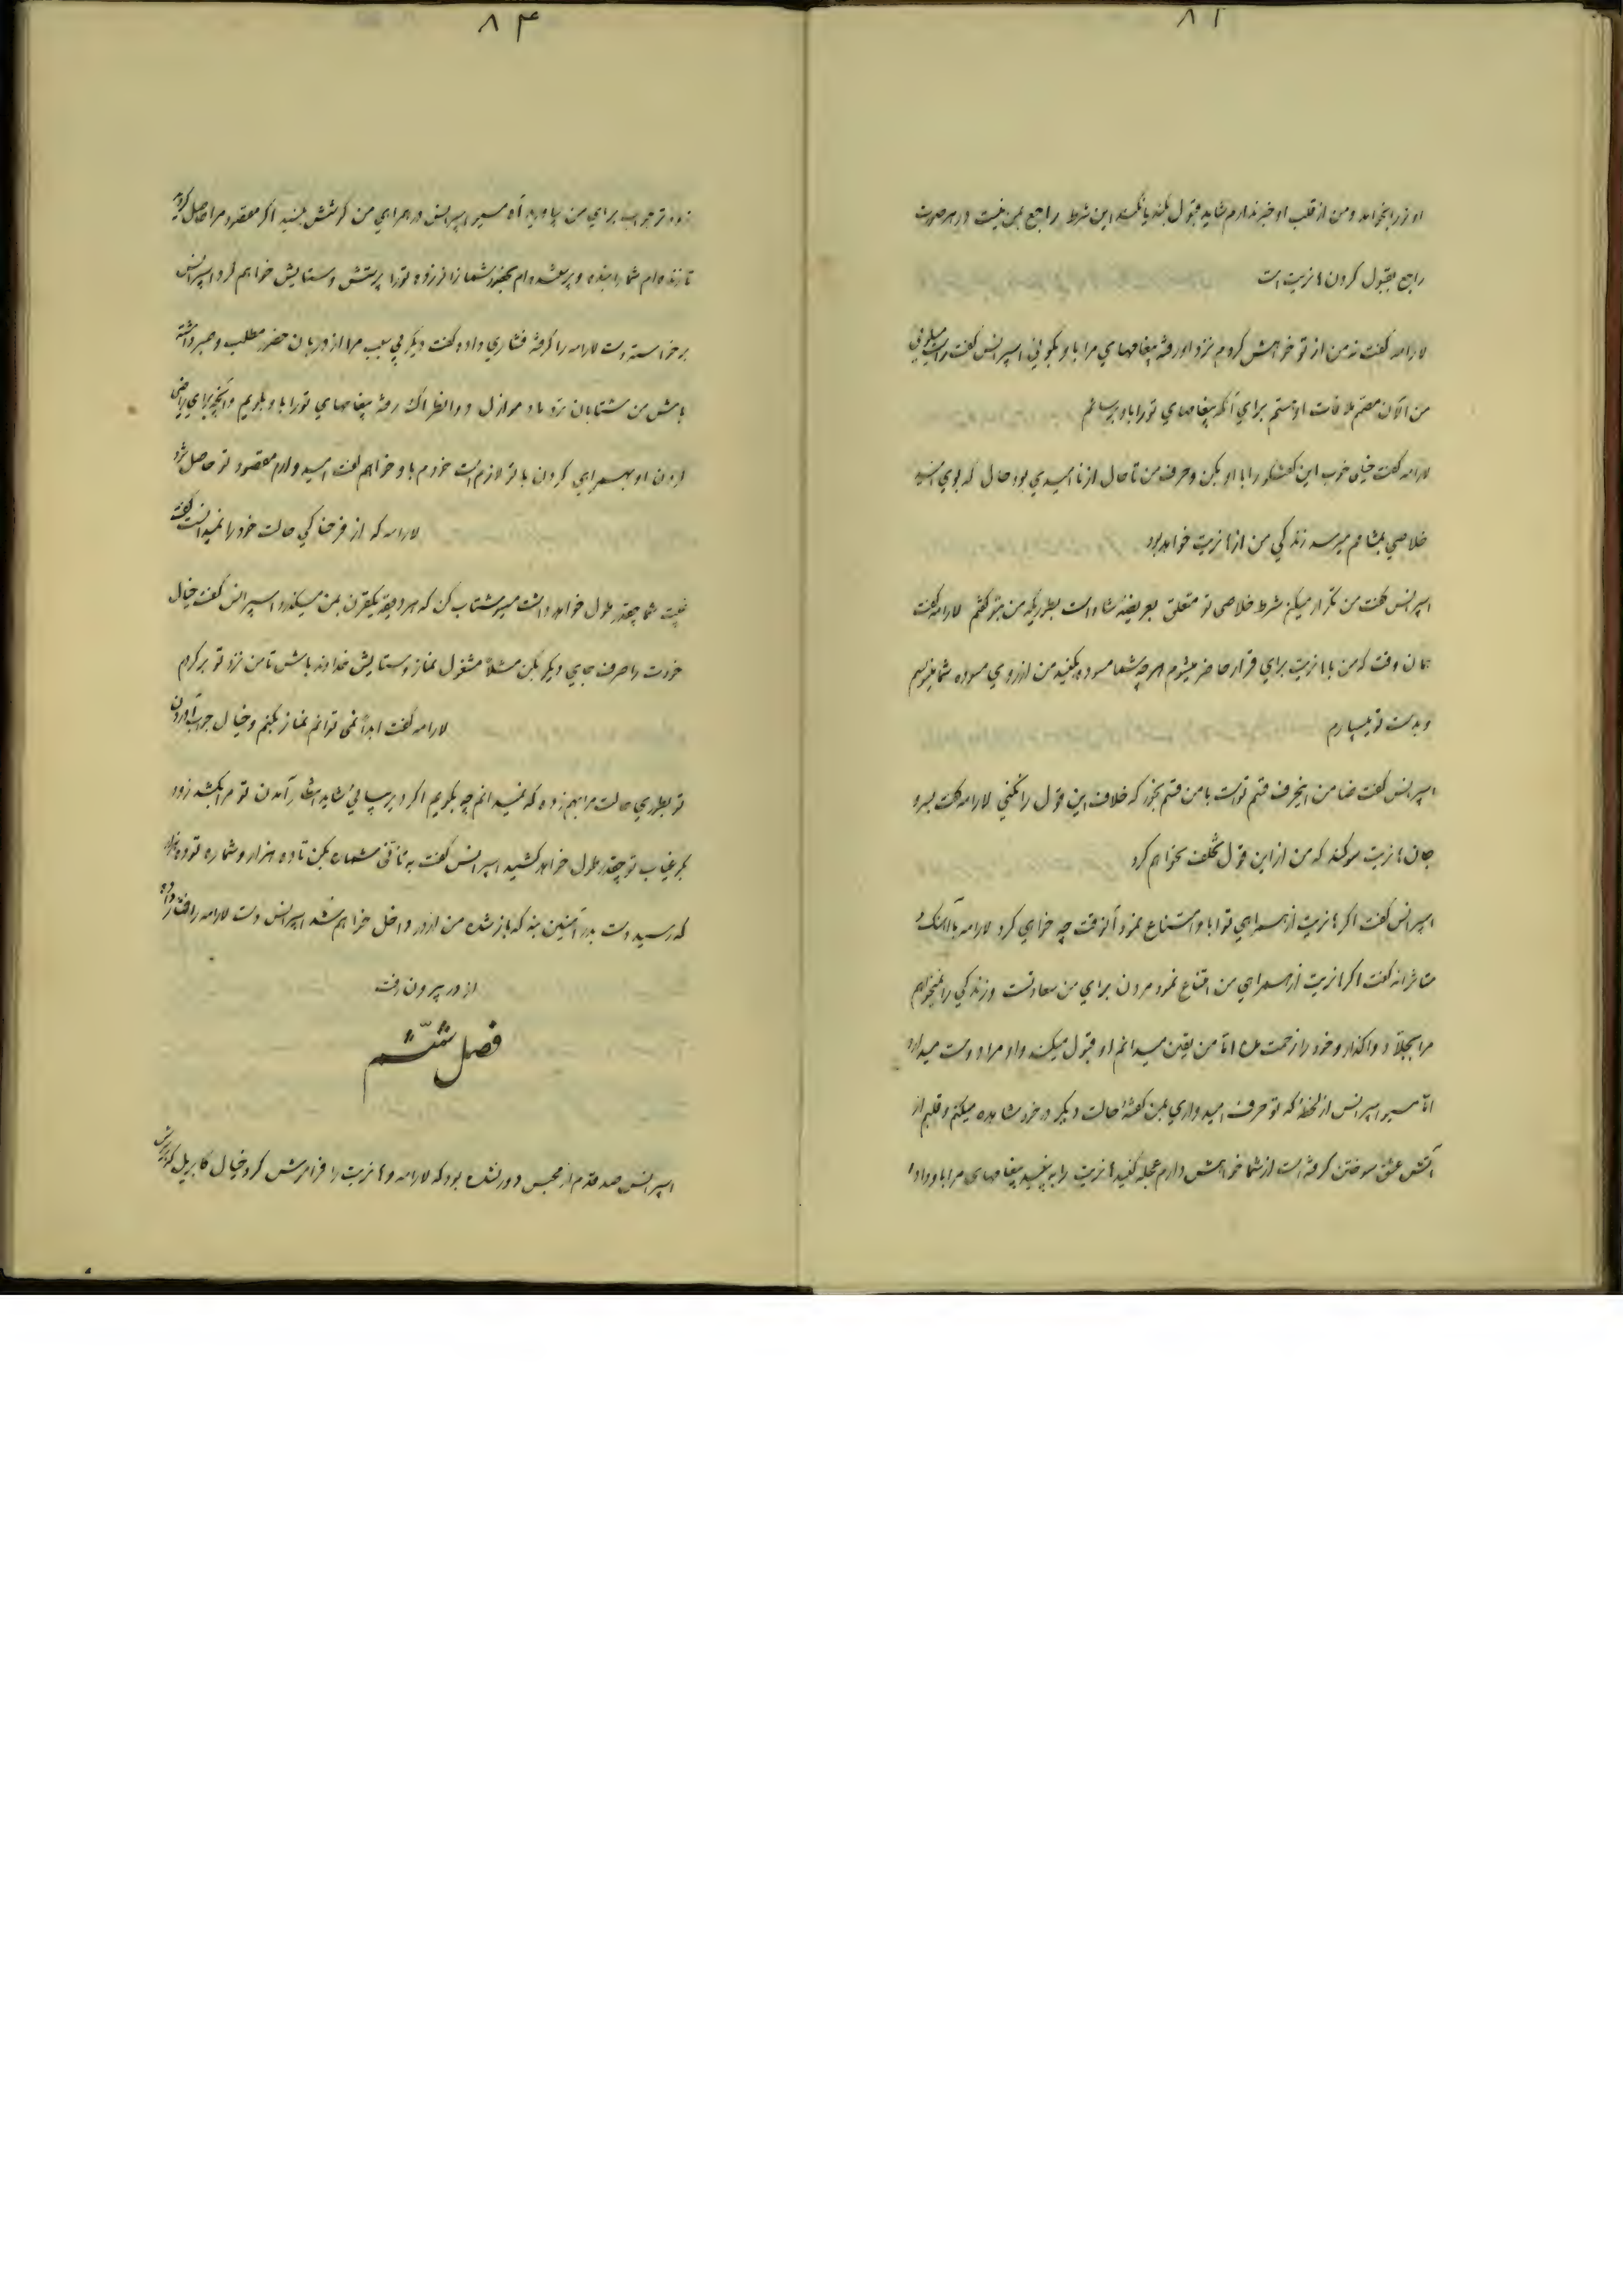 ۸۲
او تو را بخواهد و من از قلب او خبر ندارم شاید قبول بکند یا نکند این شرط راجع بمن نیست در هر صورت
راجع بقبول کردن هانریت است
لارامه گفت نه من از تو خواهش کردم نزد او رفته پیغامهای مرا باو بگوئی اسپرانس گفت
من الآن مصمم ملاقات او هستم برای آنکه پیغامهای تو را باو برسانم
لارامه گفت خیلی خوب این گفتگو را با او بکن و حرف من تا حال از نا امیدی بود حال که بوی امید
خلاصی بمشامم میرسد زندگی من از هانریت خواهد بود
اسپرانس گفت من تکرار میکنم شرط خلاصی تو متعلق بعریضه شما است بطوریکه من بتو گفتم لارامه گفت
همان وقت که من با هانریت برای فرار حاضر میشوم هر چه شما مسوده بکنید من از روی مسوده شما مینویسم
و بدست تو میسپارم
اسپرانس گفت ضامن این حرف قسم تو است با من قسم بخور که خلاف این قول را نکنی لارامه گفت بسر و
جان هانریت سوگند که من از این قول تخلف نخواهم کرد
اسپرانس گفت اگر هانریت از همراهی تو ابا و امتناع نمود آنوقت چه خواهی کرد لارامه با آهنگ
متاثرانه گفت اگر هانریت از همراهی من امتناع نمود مردن برای من سعادتست و زندگی را نمیخواهم
مرا بجلاد واگذار و خود را زحمت مده اما من یقین میدانم او قبول میکند و او مرا دوست میدارد
اما مسیو اسپرانس از لحظه که تو حرف امیدواری بمن گفتهٔ حالت دیگر در خود مشاهده میکنم و قلبم از
آتش عشق سوختن گرفته است از شما خواهش دارم عجله کنید هانریت را ببینید پیغامهای مرا باو داده
۸۳
زودتر جواب برای من بیاورید آه مسیو اسپرانس در همراهی من کوشش بکنید اگر مقصود مرا حاصل کردید
تا زنده‌ام شما را بنده و پرستنده‌ام بحضور شما زانو زده تو را پرستش و ستایش خواهم کرد اسپرانس
برخواسته دست لارامه را گرفته فشاری داده گفت دیگر بی سبب مرا از دربان حضور مطلب و صبر داشته
باش من شتابان نزد مادموازل دوانطراک رفته پیغامهای تو را باو بگویم و آنچه برای راضی
کردن او بهمراهی کردن با تو لازم است خودم باو خواهم گفت امیدوارم مقصود تو حاصل شود
لارامه که از فرحناکی حالت خود را نمیدانست گفت
غیبت شما چقدر طول خواهد داشت مسیو شتاب کن که هر دقیقه یکقرن بمن میگذرد اسپرانس گفت خیال
خودت را صرف جای دیگر بکن مثلاً مشغول نماز و ستایش خداوند باش تا من نزد تو برگردم
لارامه گفت ابداً نمی توانم نماز بکنم و خیال جواب آوردن
تو بطوری حالت مرا بهم زده که نمیدانم چه بگویم اگر دیر بیائی شاید انتظار آمدن تو مرا بکشد زود
بگو غیاب تو چقدر طول خواهد کشید اسپرانس گفت به تأنی شماره بکن تا ده هزار و شماره تو ده هزار
که رسید دست بدر آهنین بنه که باز شده من از در داخل خواهم شد اسپرانس دست لارامه را فشار داده
از در بیرون رفت
فصل ششم
اسپرانس صد قدم از محبس دور نشده بود که لارامه و هانریت را فراموش کرد خیال گابریل